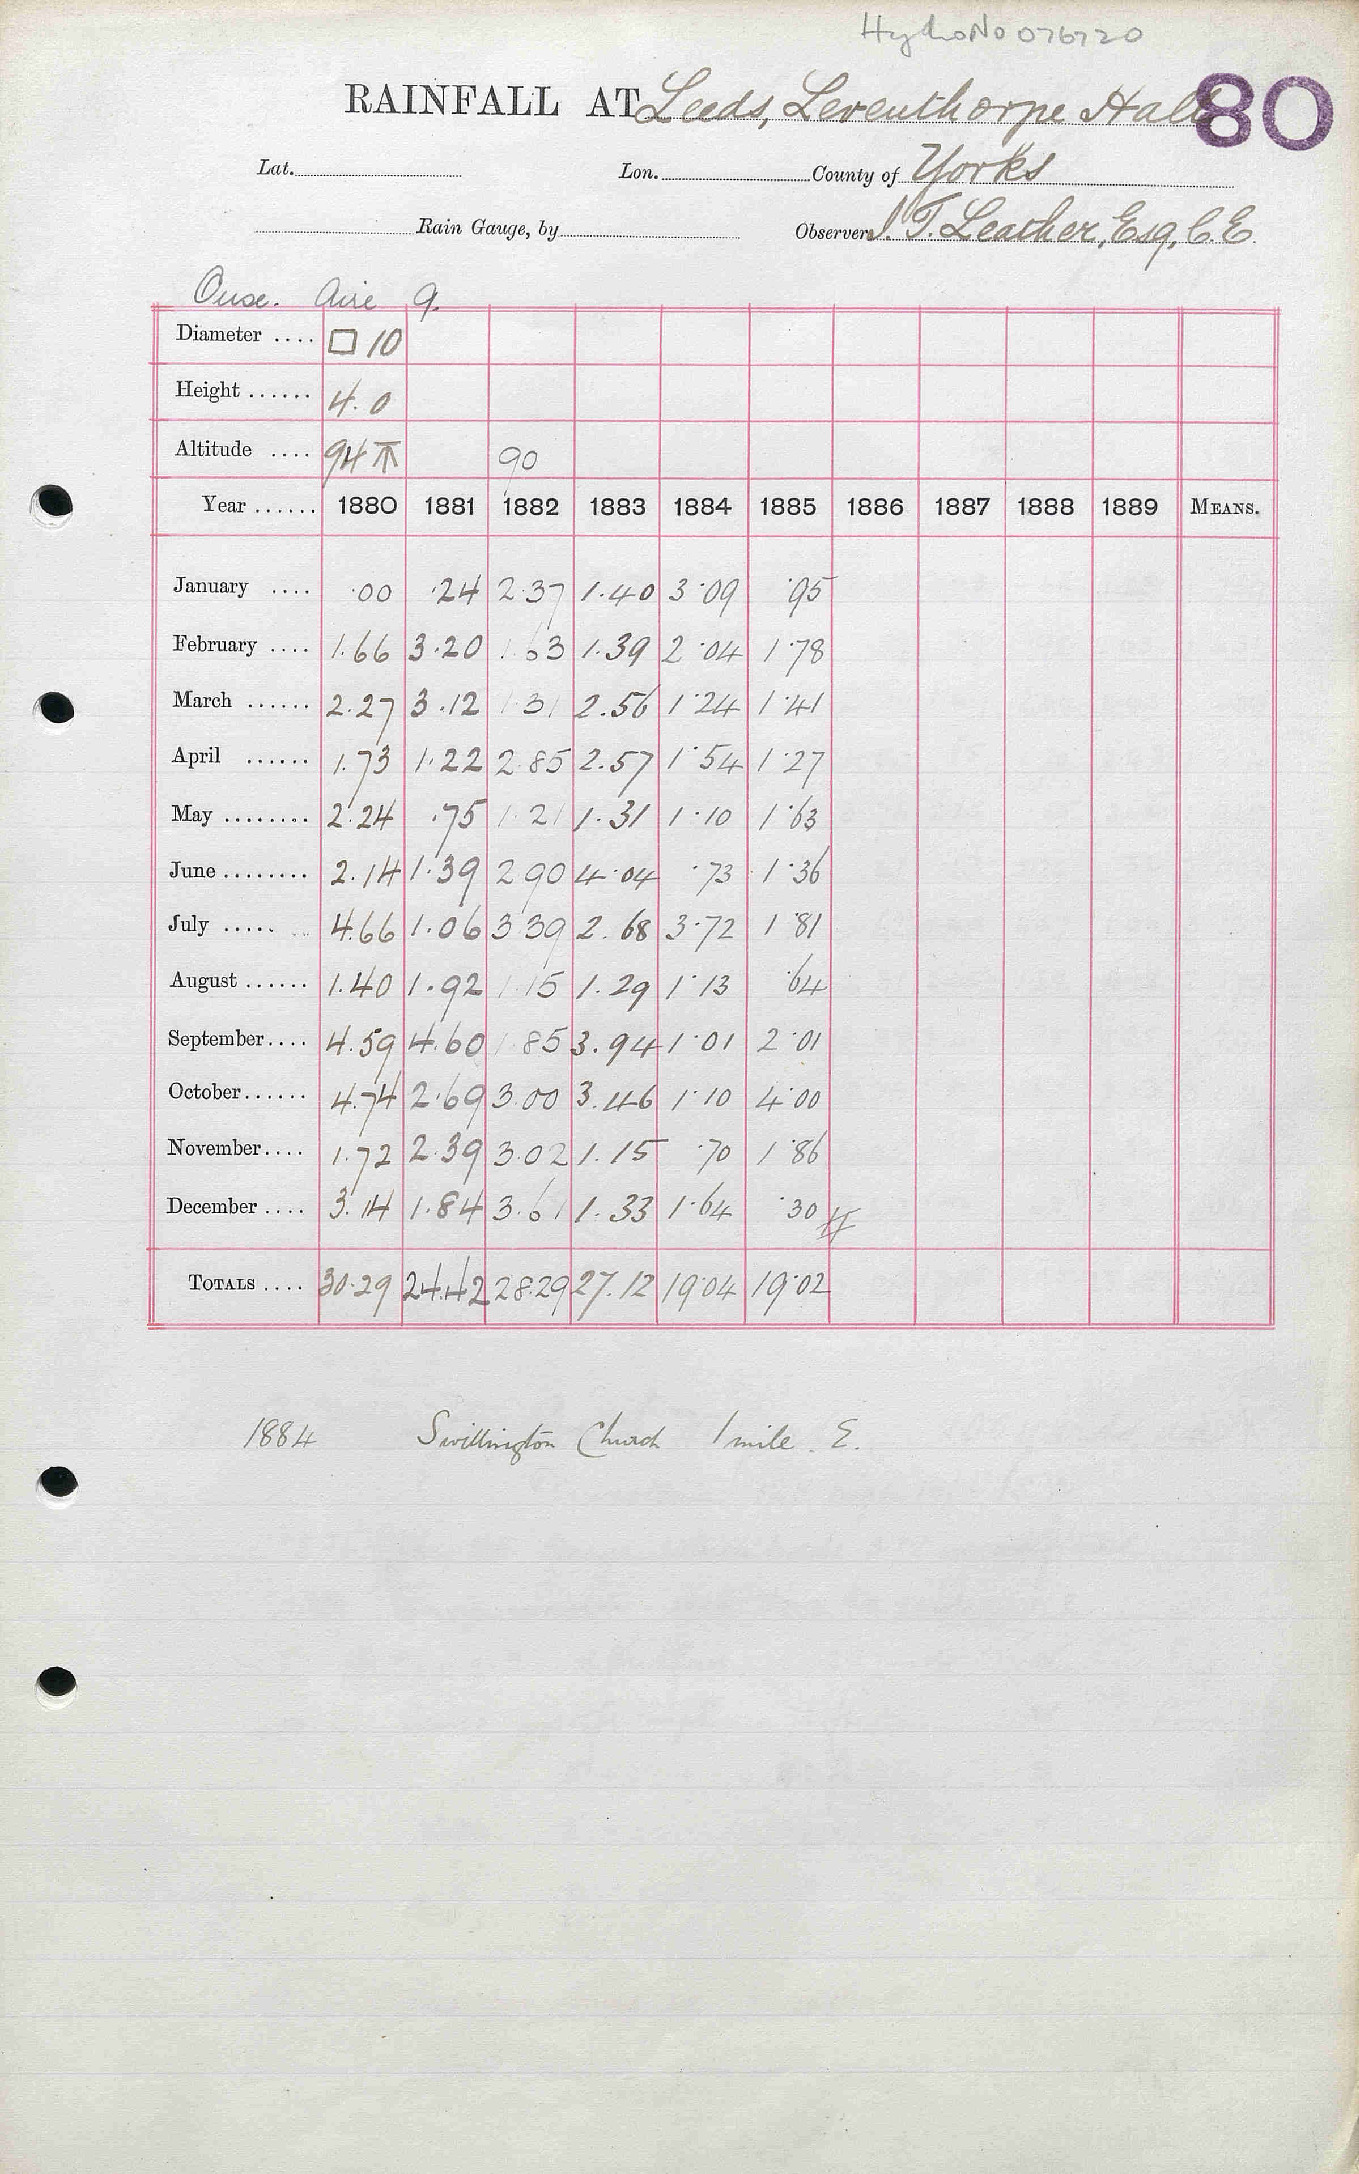 Hydro No 076720
RAINFALL AT Leeds, Leventhorpe Hall 80
Lat. Lon. County of Yorks
Rain Gauge, by Observer J. T. Leather, Esq, C.E.
Ouse. Aire 9.
Diameter .... □ 10
Height ...... 4.0
Altitude .... 94 90
Year ...... 1880 1881 1882 1883 1884 1885 1886 1887 1888 1889 MEANS.
January .... .00 .24 2.37 1.40 3.09 .95
February .... 1.66 3.20 1.63 1.39 2.04 1.78
March ...... 2.27 3.12 1.31 2.56 1.24 1.41
April ...... 1.73 1.22 2.85 2.57 1.54 1.27
May ........ 2.24 .75 1.21 1.31 1.10 1.63
June ........ 2.14 1.39 2.90 4.04 .73 1.36
July ..... 4.66 1.06 3.39 2.68 3.72 1.81
August ...... 1.40 1.92 1.15 1.29 1.13 .64
September.... 4.59 4.60 1.85 3.94 1.01 2.01
October...... 4.74 2.69 3.00 3.46 1.10 4.00
November.... 1.72 2.39 3.02 1.15 .70 1.86
December .... 3.14 1.84 3.61 1.33 1.64 .30
TOTALS .... 30.29 24.42 28.29 27.12 19.04 19.02
1884 Swillington Church 1 mile. E.